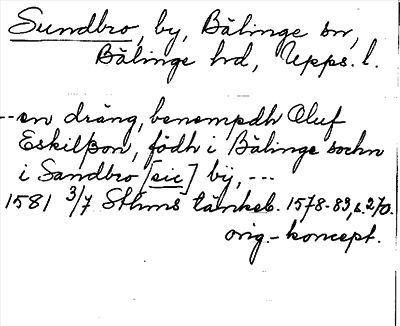 Sundbro, by, Bälinge sn,
Bälinge hd, Upps. l.
--en dräng, benempdh Oluf
Eskilßon, födh i Bälinge sochn
i Sandbro [sic] bÿ, ---
1581 3/7 Sthms tänkeb. 1578-83, s. 270.
orig.-koncept.